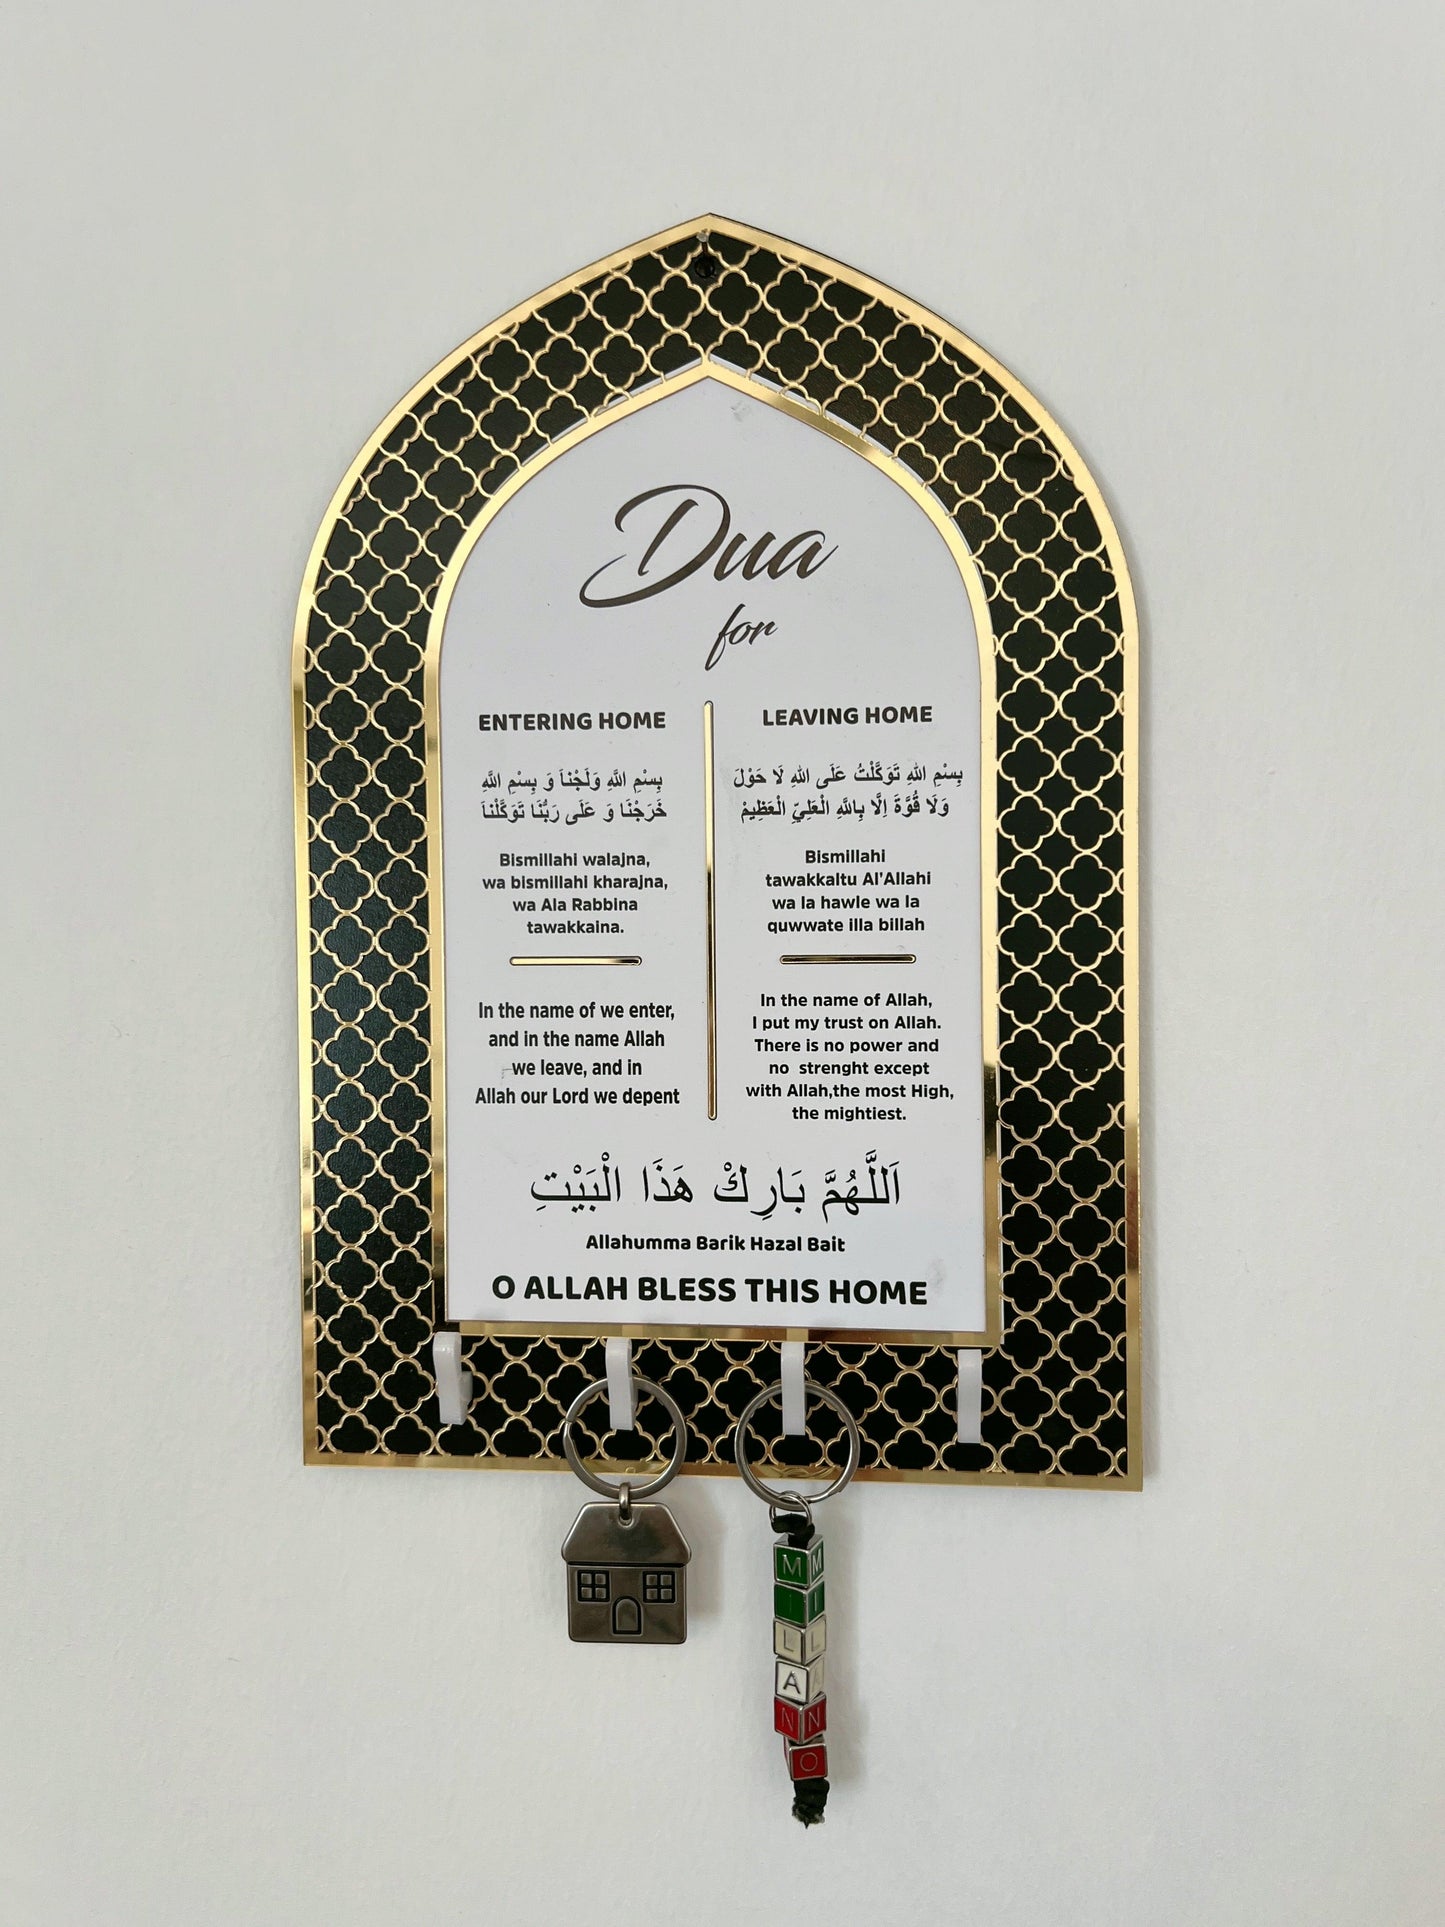 Dua
for
ENTERING HOME
بِسْمِ اللَّهِ وَلَجْنَا وَ بِسْمِ اللَّهِ
خَرَجْنَا وَ عَلَى رَبِّنَا تَوَكَّلْنَا
Bismillahi walajna,
wa bismillahi kharajna,
wa Ala Rabbina
tawakkaina.
In the name of we enter,
and in the name Allah
we leave, and in
Allah our Lord we depent
LEAVING HOME
بِسْمِ اللهِ تَوَكَّلْتُ عَلَى اللهِ لَا حَوْلَ
وَلَا قُوَّةَ اِلَّا بِاللَّهِ الْعَلِيِّ الْعَظِيمْ
Bismillahi
tawakkaltu Al'Allahi
wa la hawle wa la
quwwate illa billah
In the name of Allah,
I put my trust on Allah.
There is no power and
no strenght except
with Allah,the most High,
the mightiest.
اَللَّهُمَّ بَارِكْ هَذَا الْبَيْتِ
Allahumma Barik Hazal Bait
O ALLAH BLESS THIS HOME
MILANO